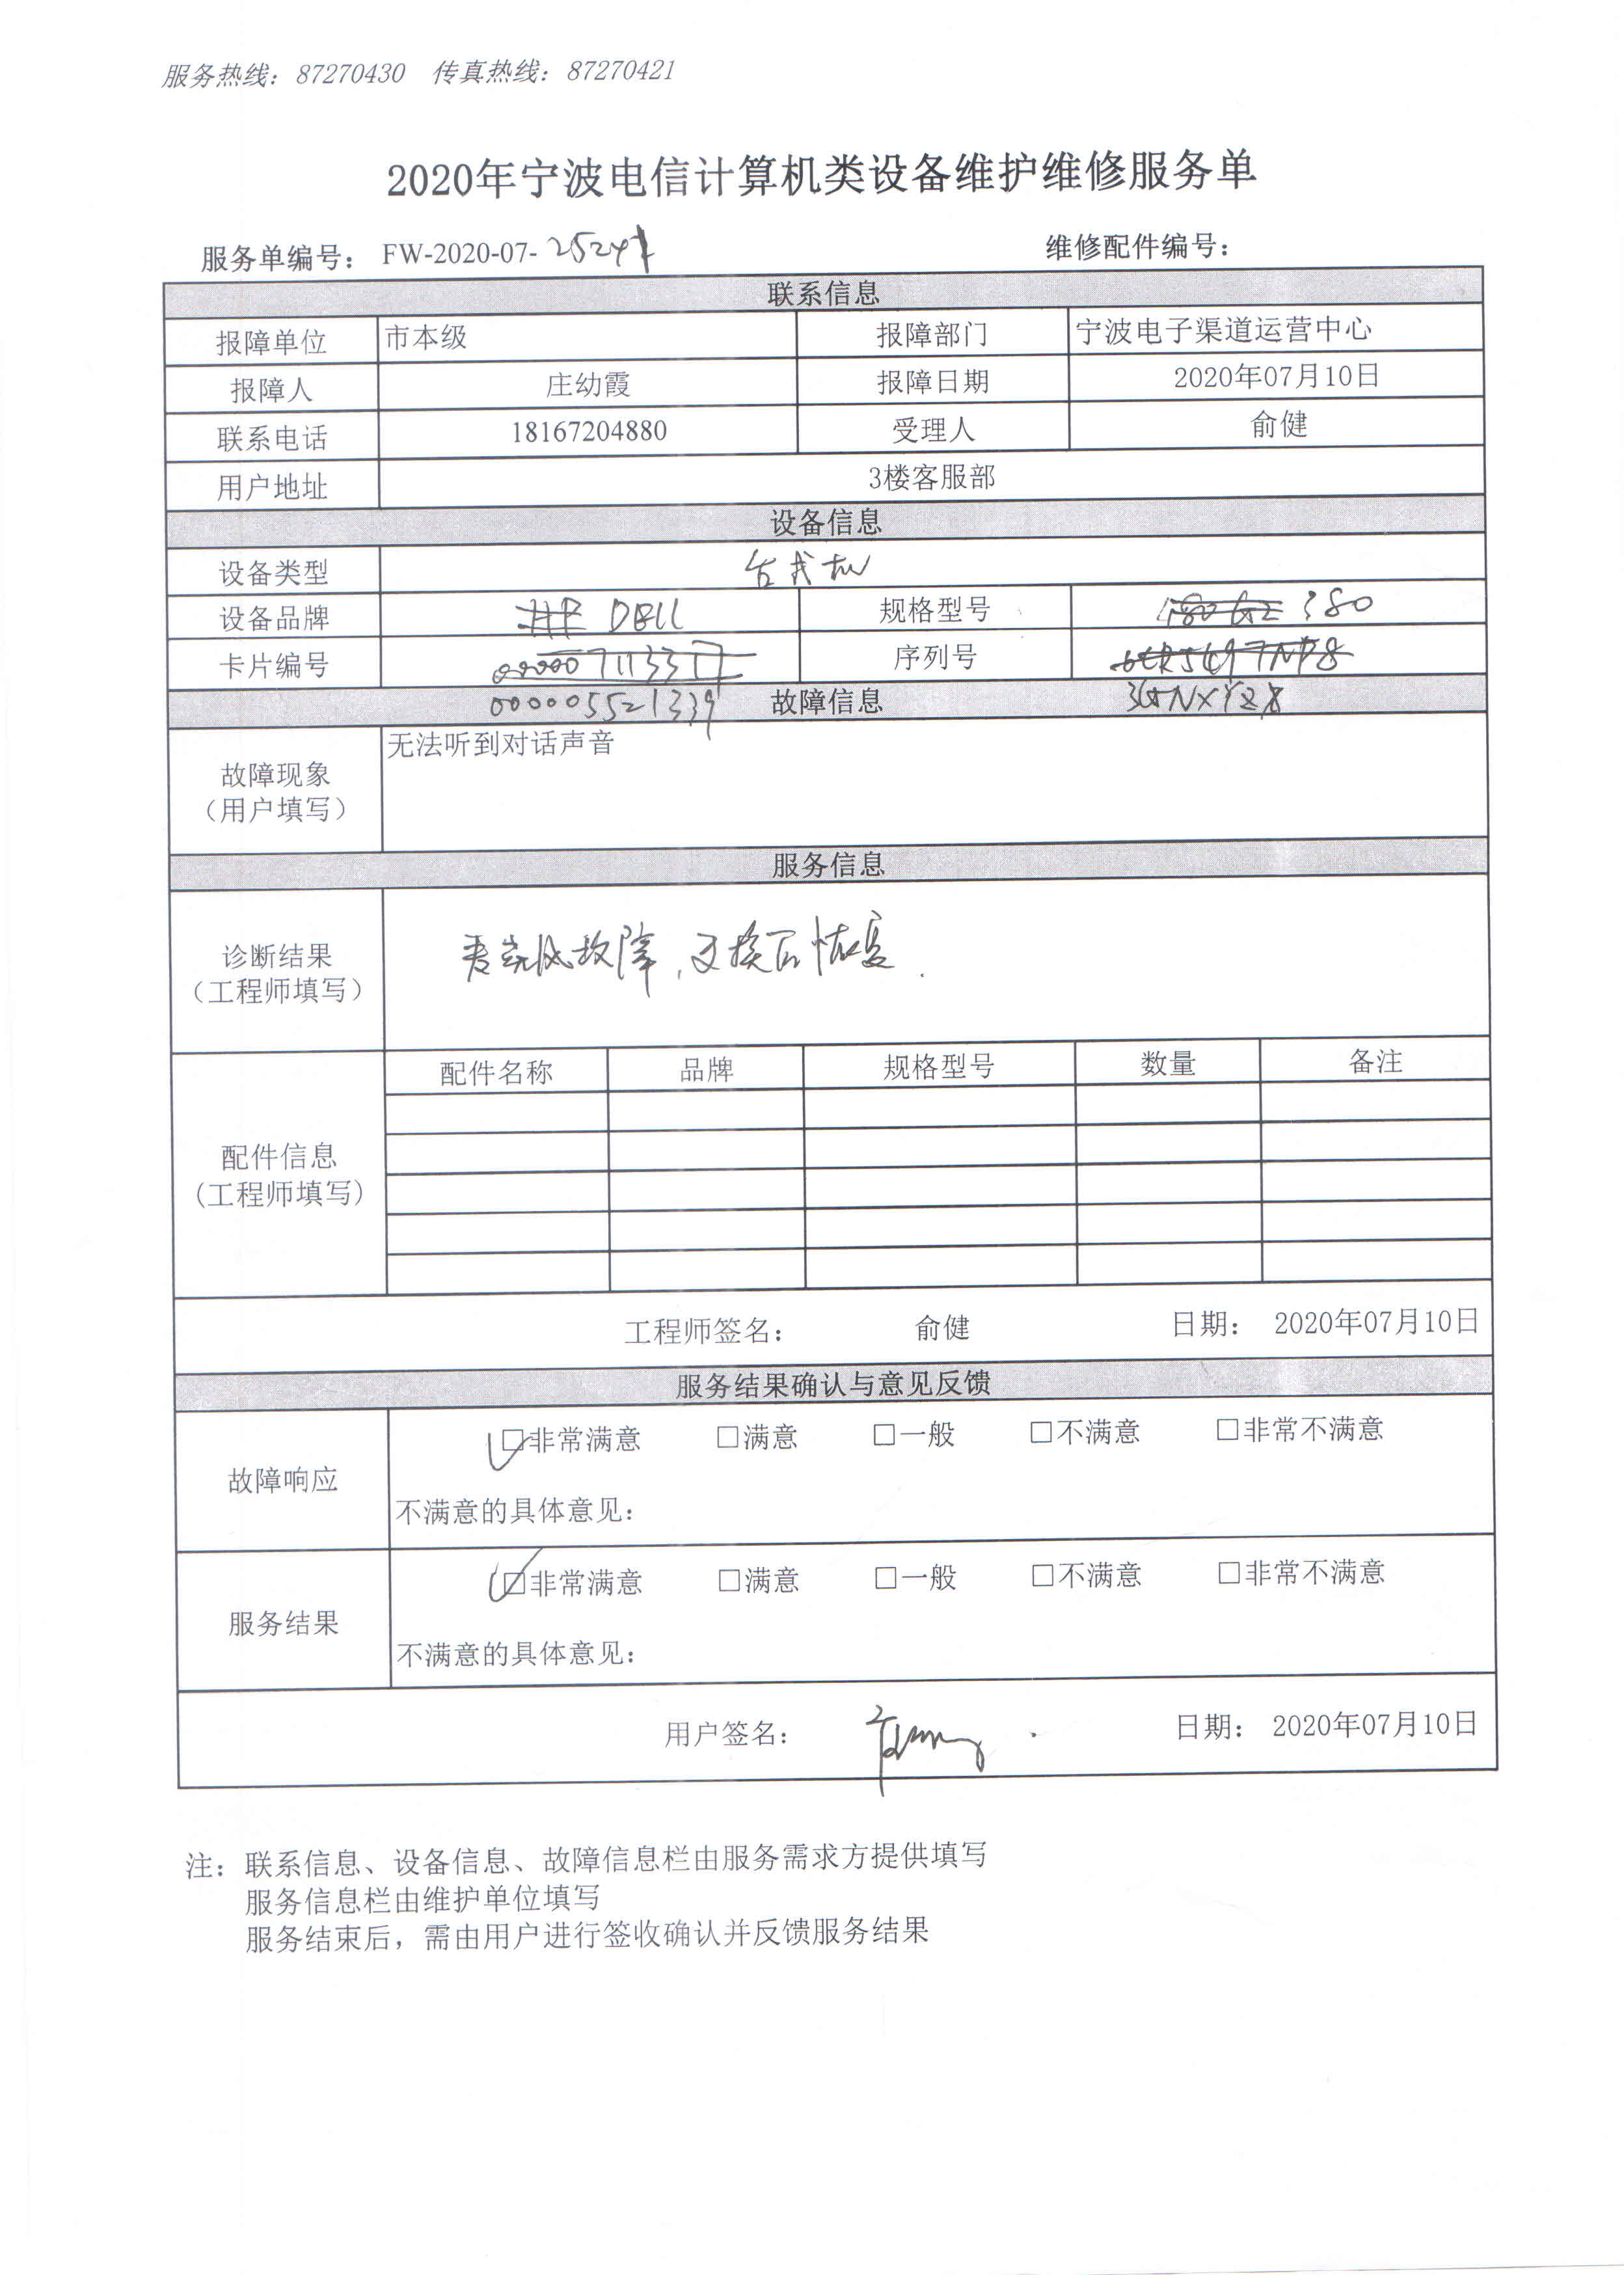 服务热线：87270430 传真热线：87270421
2020年宁波电信计算机类设备维护维修服务单
服务单编号： FW-2020-07- 维修配件编号：
联系信息
报障单位 市本级 报障部门 宁波电子渠道运营中心
报障人 庄幼霞 报障日期 2020年07月10日
联系电话 18167204880 受理人 俞健
用户地址 3楼客服部
设备信息
设备类型 台式机
设备品牌 DELL 规格型号 380
卡片编号 序列号
000005521339 故障信息
故障现象 无法听到对话声音
（用户填写）
服务信息
诊断结果 麦克风故障，更换后恢复.
（工程师填写）
配件信息 配件名称 品牌 规格型号 数量 备注
（工程师填写）
工程师签名： 俞健 日期： 2020年07月10日
服务结果确认与意见反馈
故障响应 □非常满意 □满意 □一般 □不满意 □非常不满意
不满意的具体意见：
服务结果 □非常满意 □满意 □一般 □不满意 □非常不满意
不满意的具体意见：
用户签名： 日期： 2020年07月10日
注：联系信息、设备信息、故障信息栏由服务需求方提供填写
服务信息栏由维护单位填写
服务结束后，需由用户进行签收确认并反馈服务结果